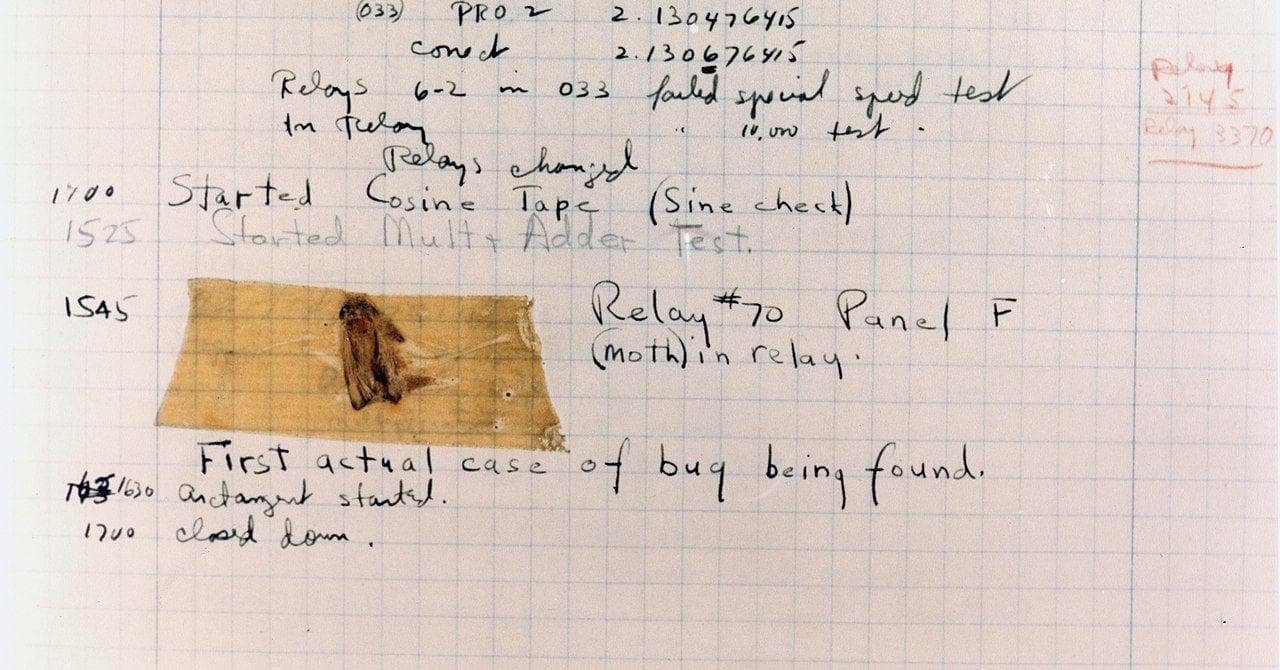 (033) PRO 2 2.130476415
conect 2.130676415
Relays 6-2 in 033 failed special speed test
In Relay " 10,000 test .
Relays changed
Relay
2145
Relay 3370
1700 Started Cosine Tape (Sine check)
1525 Started Mult + Adder Test.
1545 Relay #70 Panel F
(moth) in relay.
First actual case of bug being found.
1630 arctangent started.
1700 closed down .